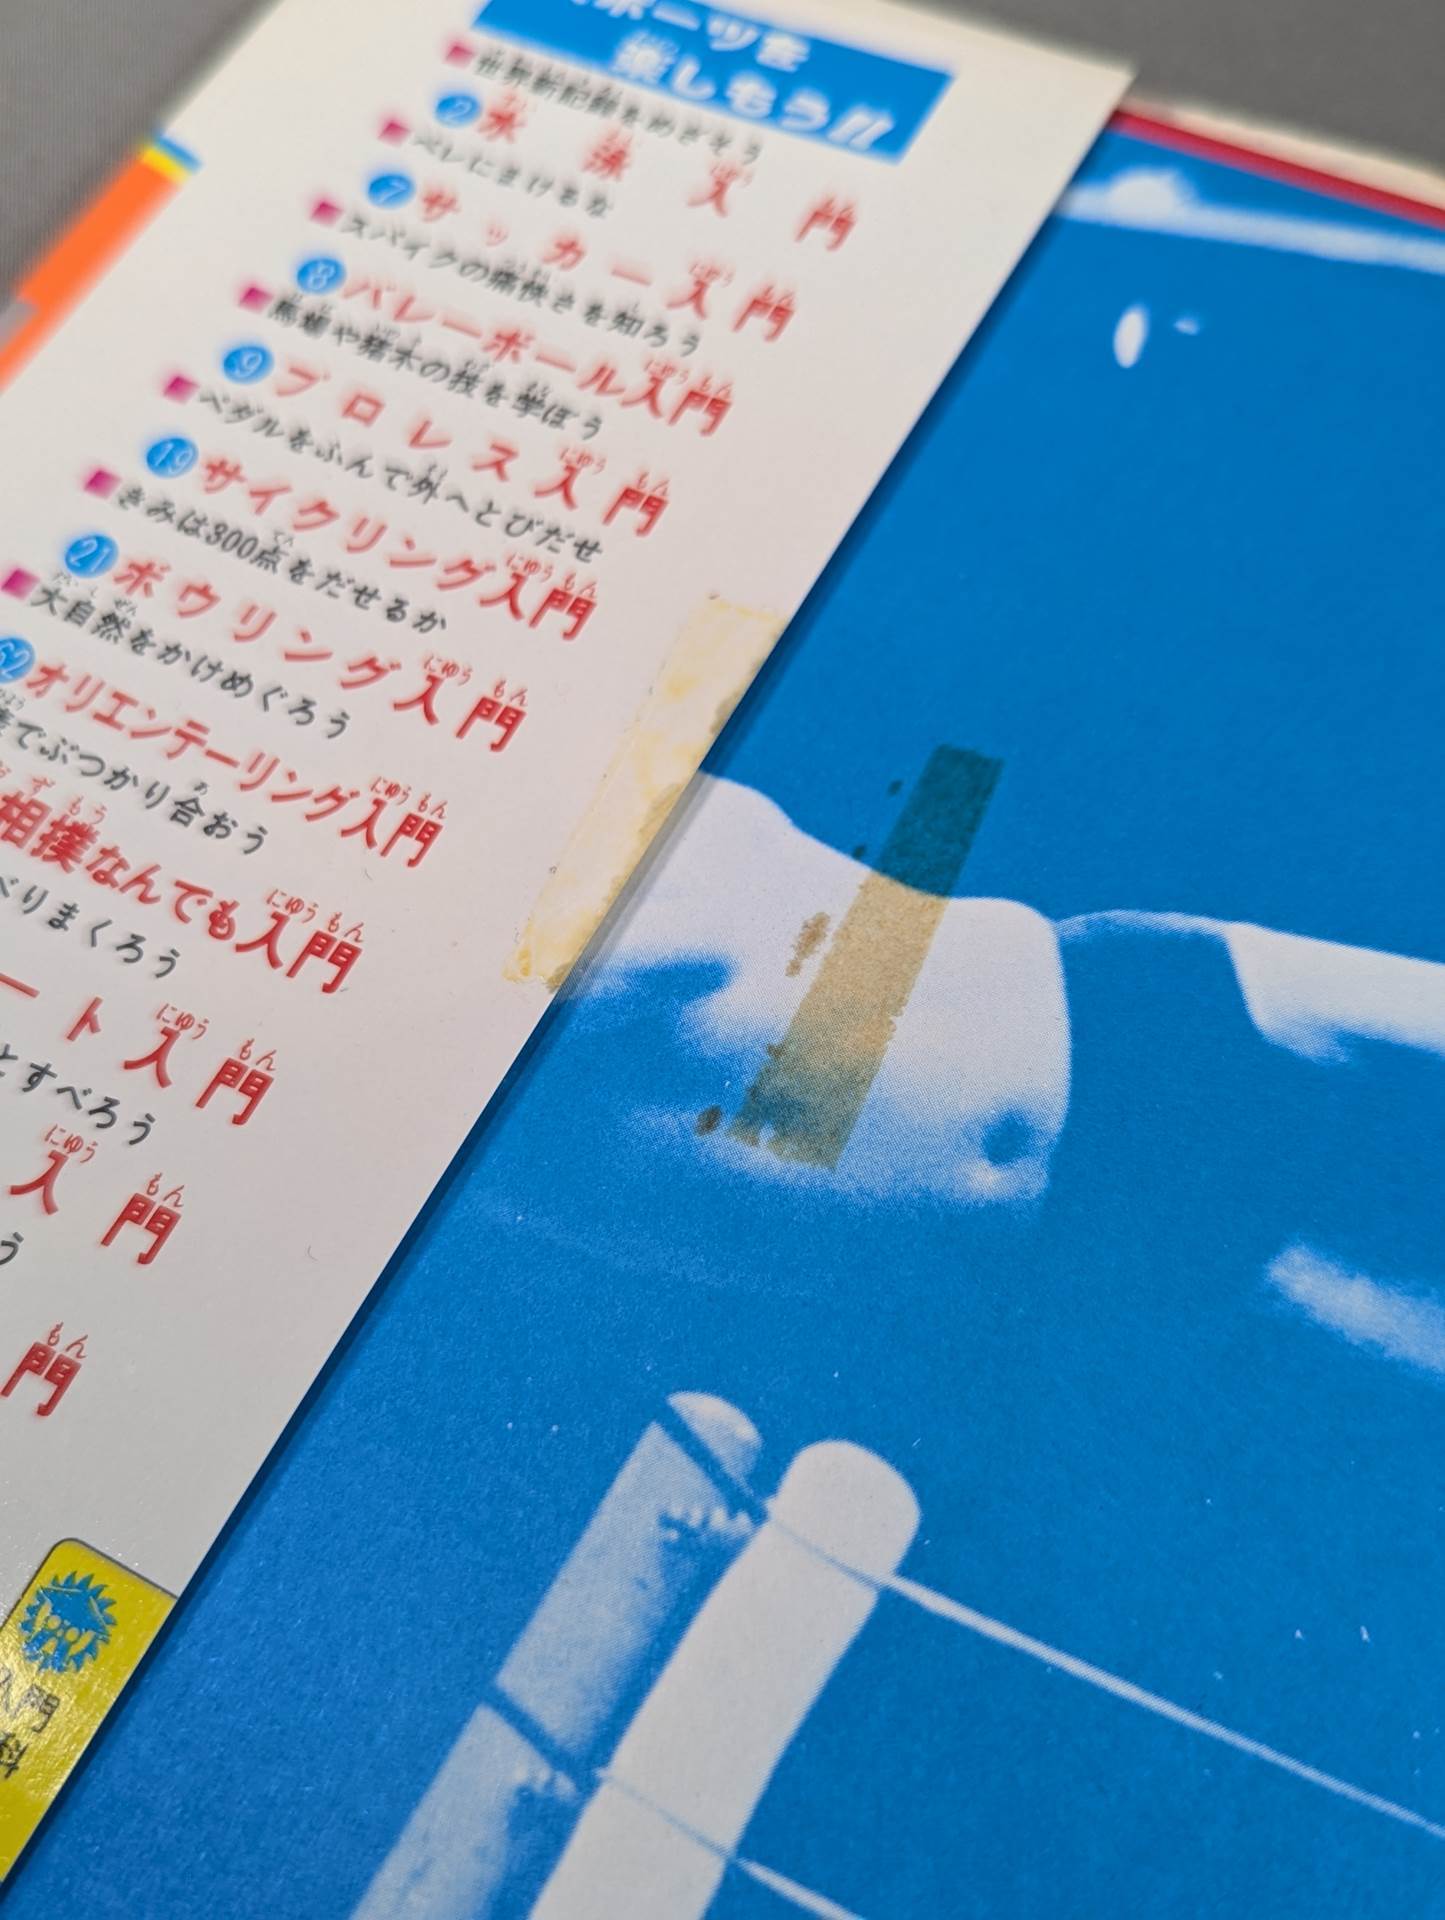 ポーツを
楽しもう!!
■世界新記録をめざそう
2 水泳入門
■ペレにまけるな
7 サッカー入門
■スパイクの痛快さを知ろう
8 バレーボール入門
■馬場や猪木の技を学ぼう
9 プロレス入門
■ペダルをふんで外へとびだせ
19 サイクリング入門
■きみは300点をだせるか
21 ボウリング入門
■大自然をかけめぐろう
62 オリエンテーリング入門
でぶつかり合おう
相撲なんでも入門
べりまくろう
ート入門
とすべろう
入門
う
門
入門
科